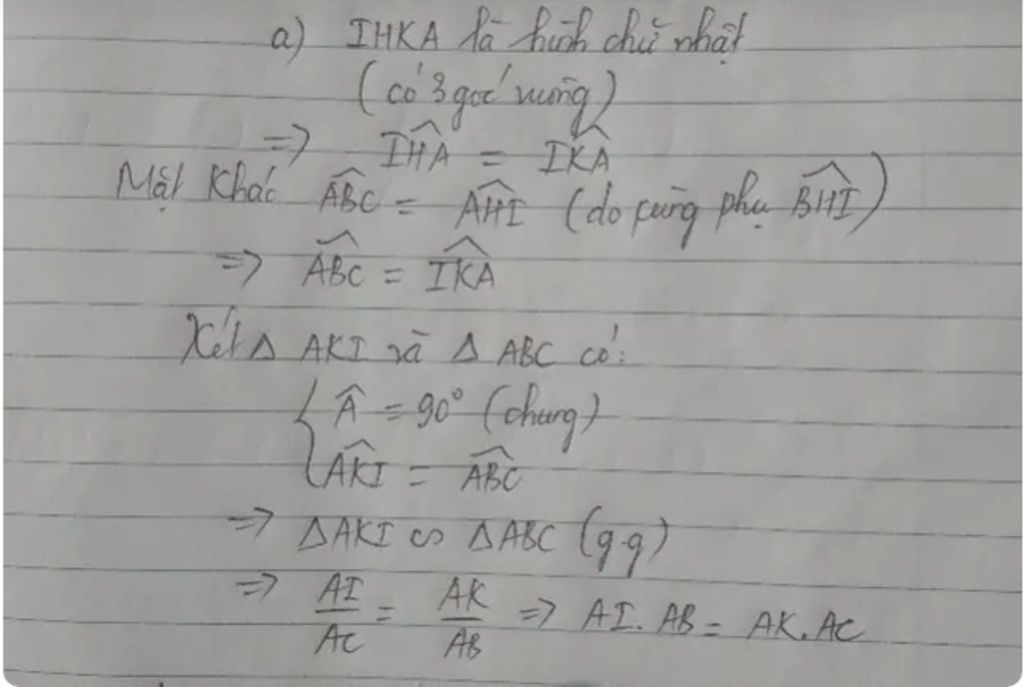 a) IHKA là hình chữ nhật
(có 3 góc vuông)
=> \widehat{IHA} = \widehat{IKA}
Mặt Khác \widehat{ABC} = \widehat{AHI} (do cùng phụ \widehat{BHI})
=> \widehat{ABC} = \widehat{IKA}
Xét Δ AKI và Δ ABC có:
{ \widehat{A} = 90° (chung)
\widehat{AKI} = \widehat{ABC}
=> ΔAKI ∽ ΔABC (g.g)
=> AI/AC = AK/AB => AI. AB = AK. AC